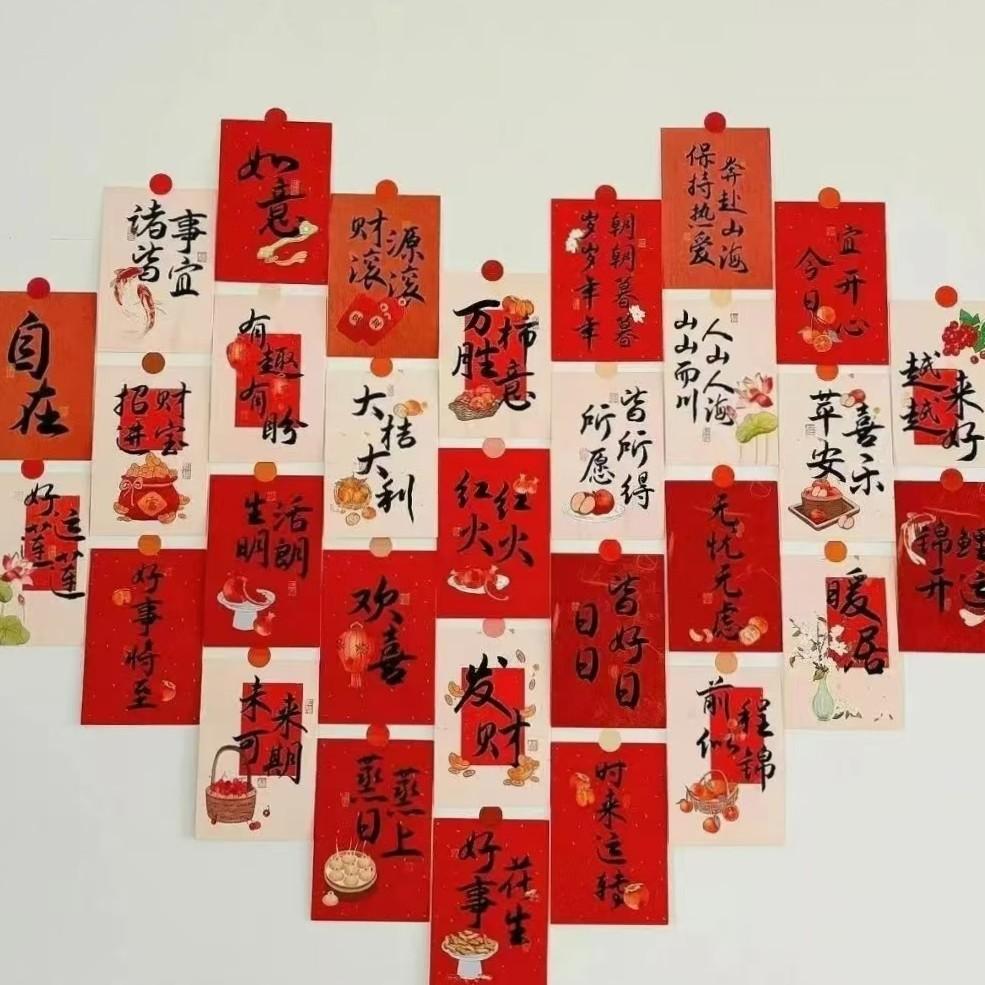 如意
保持热爱
奔赴山海
诸事
皆宜
财源
滚滚
岁岁年年
朝朝暮暮
今日
宜开心
自在
有趣
有盼
万柿
胜意
山山而川
人山人海
越来
越好
招财
进宝
大桔
大利
所愿
皆所得
苹安
喜乐
好运
莲莲
生活
明朗
红红
火火
无忧无虑
锦鲤
开运
好事将至
欢喜
日日
皆好日
暖居
未来
可期
发财
前程
似锦
蒸蒸
日上
时来运转
好事
花生